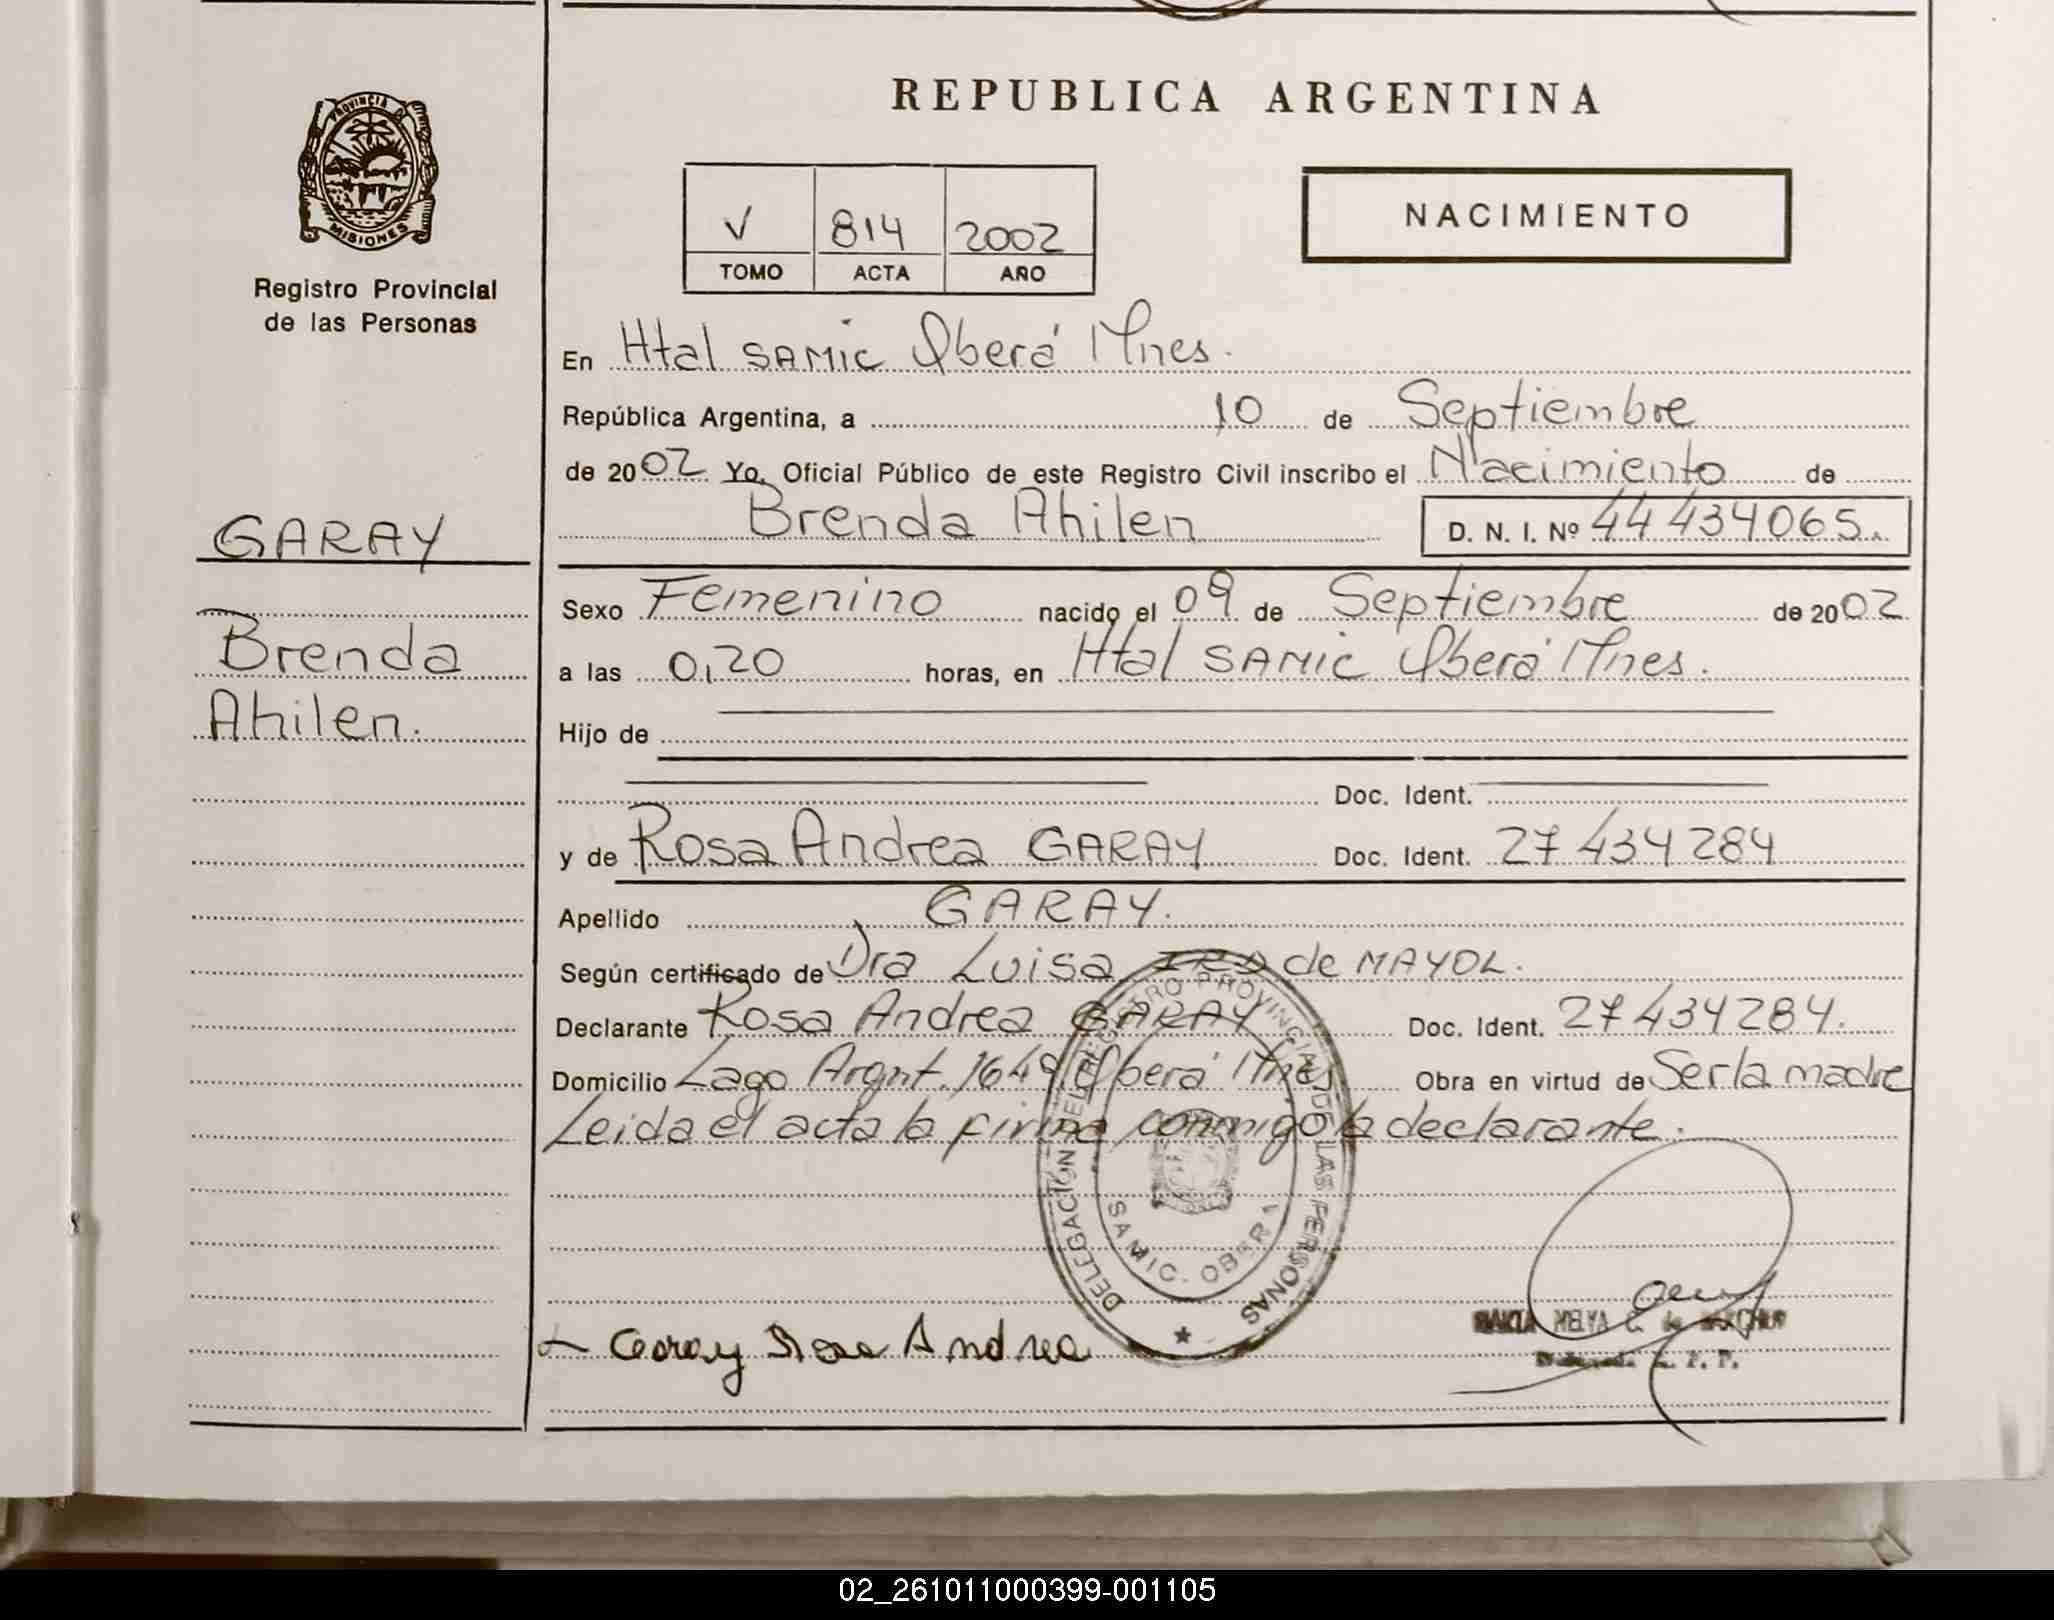 REPUBLICA ARGENTINA
PROVINCIA DE
MISIONES
Registro Provincial
de las Personas
V 814 2002
TOMO ACTA AÑO
NACIMIENTO
En Htal SAMIC Oberá Mnes.
República Argentina, a 10 de Septiembre
de 2002 Yo, Oficial Público de este Registro Civil inscribo el Nacimiento de
Brenda Ahilen D. N. I. Nº 44434065.
GARAY
Brenda
Ahilen.
Sexo Femenino nacido el 09 de Septiembre de 2002
a las 0,20 horas, en Htal SAMIC Oberá Mnes.
Hijo de
Doc. Ident.
y de Rosa Andrea GARAY Doc. Ident. 27434284
Apellido GARAY.
Según certificado de Dra Luisa de MAYOL.
Declarante Rosa Andrea GARAY Doc. Ident. 27434284.
Domicilio Lago Argnt. 1649 Oberá Mnes Obra en virtud de Ser la madre
Leida el acta la firma conmigo la declarante.
DELEGACIÓN DEL REGISTRO PROVINCIAL DE LAS PERSONAS
SAMIC. OBERA
Garay Rosa Andrea
MELVA
02_261011000399-001105